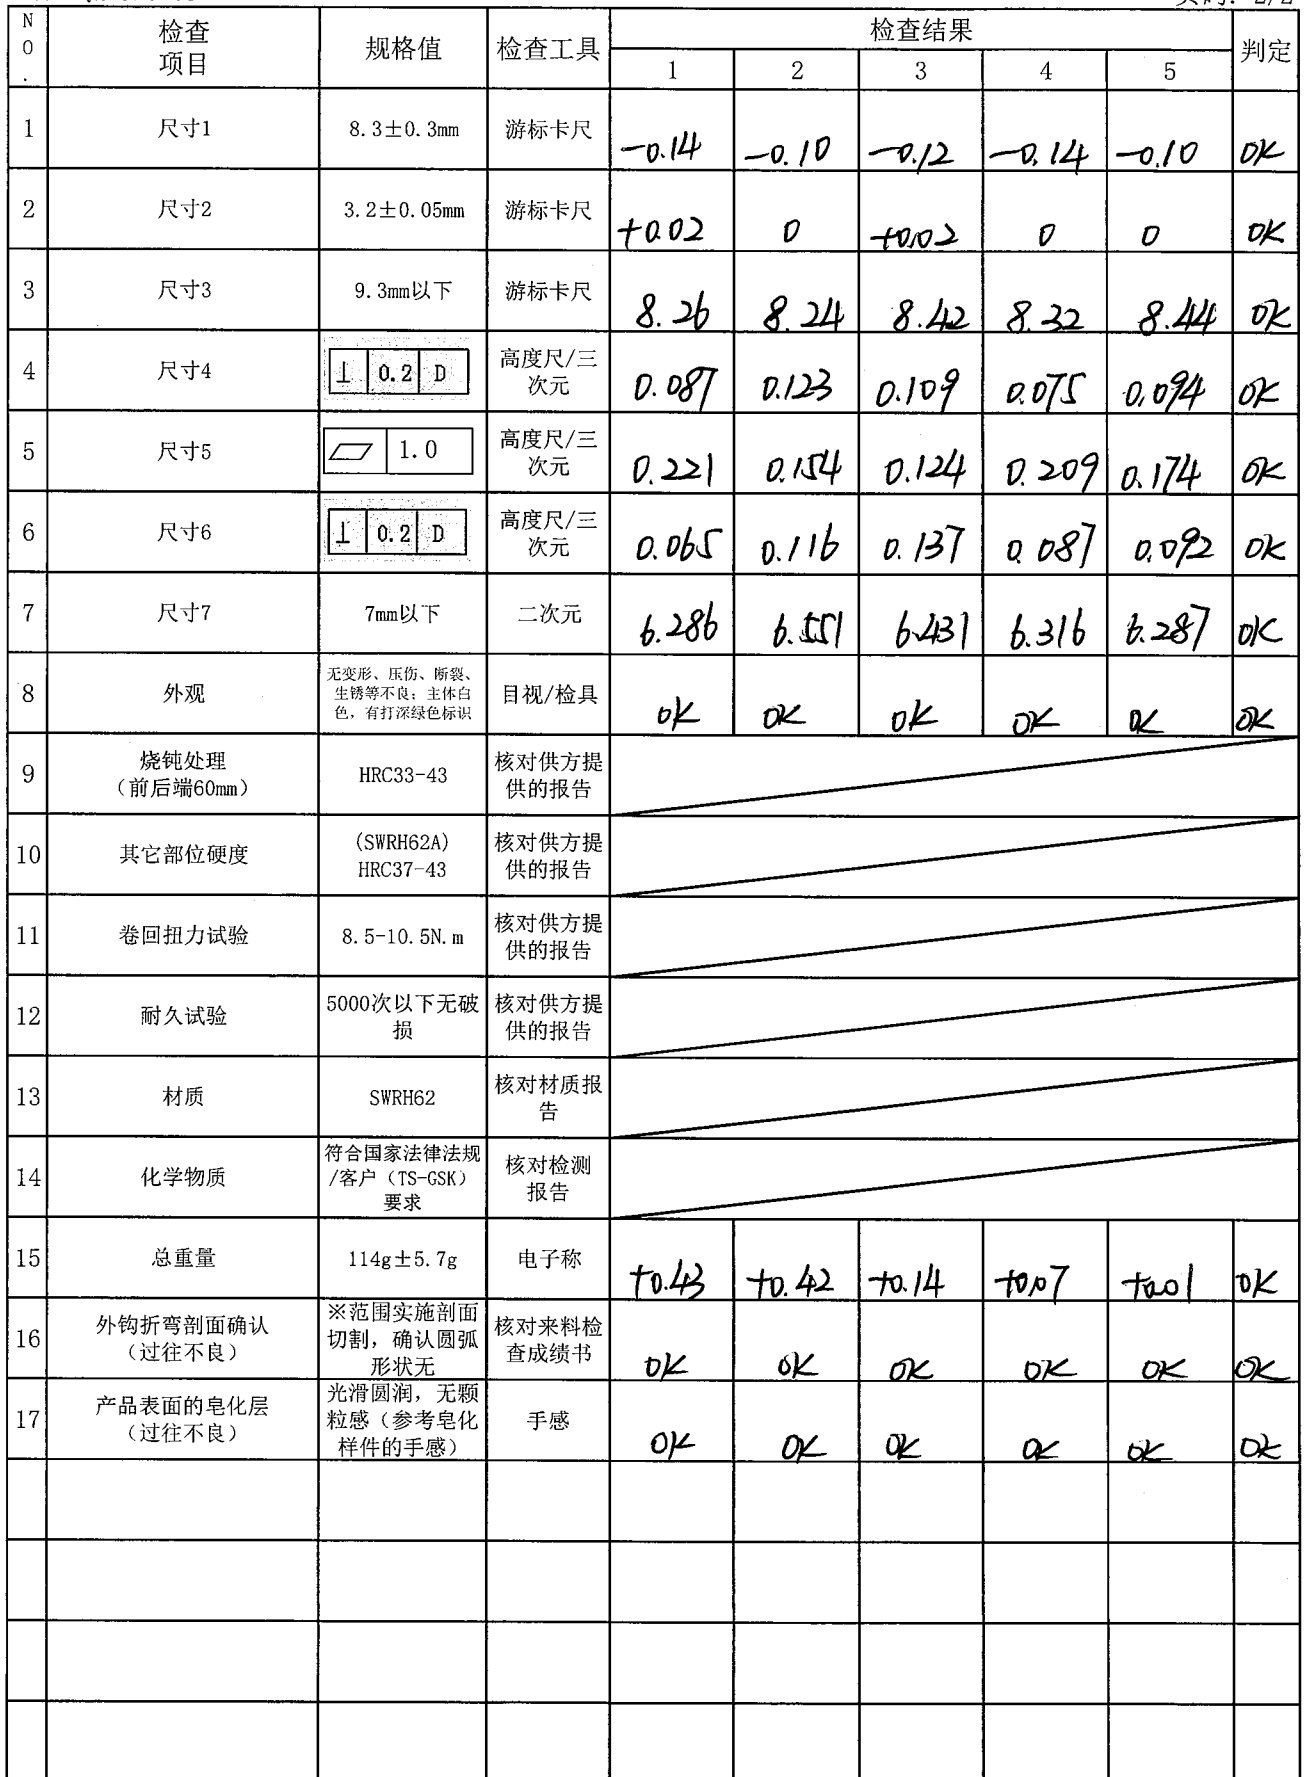 NO. 检查项目 规格值 检查工具 检查结果 判定
1 2 3 4 5
1 尺寸1 8.3±0.3mm 游标卡尺 -0.14 -0.10 -0.12 -0.14 -0.10 OK
2 尺寸2 3.2±0.05mm 游标卡尺 +0.02 0 +0.02 0 0 OK
3 尺寸3 9.3mm以下 游标卡尺 8.26 8.24 8.42 8.32 8.44 OK
4 尺寸4 ⊥ 0.2 D 高度尺/三次元 0.087 0.123 0.109 0.075 0.094 OK
5 尺寸5 ▱ 1.0 高度尺/三次元 0.221 0.154 0.124 0.209 0.174 OK
6 尺寸6 ⊥ 0.2 D 高度尺/三次元 0.065 0.116 0.137 0.087 0.092 OK
7 尺寸7 7mm以下 二次元 6.286 6.551 6.431 6.316 6.287 OK
8 外观 无变形、压伤、断裂、生锈等不良；主体白色，有打深绿色标识 目视/检具 OK OK OK OK OK OK
9 烧钝处理（前后端60mm） HRC33-43 核对供方提供的报告
10 其它部位硬度 (SWRH62A) HRC37-43 核对供方提供的报告
11 卷回扭力试验 8.5-10.5N.m 核对供方提供的报告
12 耐久试验 5000次以下无破损 核对供方提供的报告
13 材质 SWRH62 核对材质报告
14 化学物质 符合国家法律法规/客户（TS-GSK）要求 核对检测报告
15 总重量 114g±5.7g 电子称 +0.43 +0.42 +0.14 +0.07 +0.01 OK
16 外钩折弯剖面确认（过往不良） ※范围实施剖面切割，确认圆弧形状无 核对来料检查成绩书 OK OK OK OK OK OK
17 产品表面的皂化层（过往不良） 光滑圆润，无颗粒感（参考皂化样件的手感） 手感 OK OK OK OK OK OK